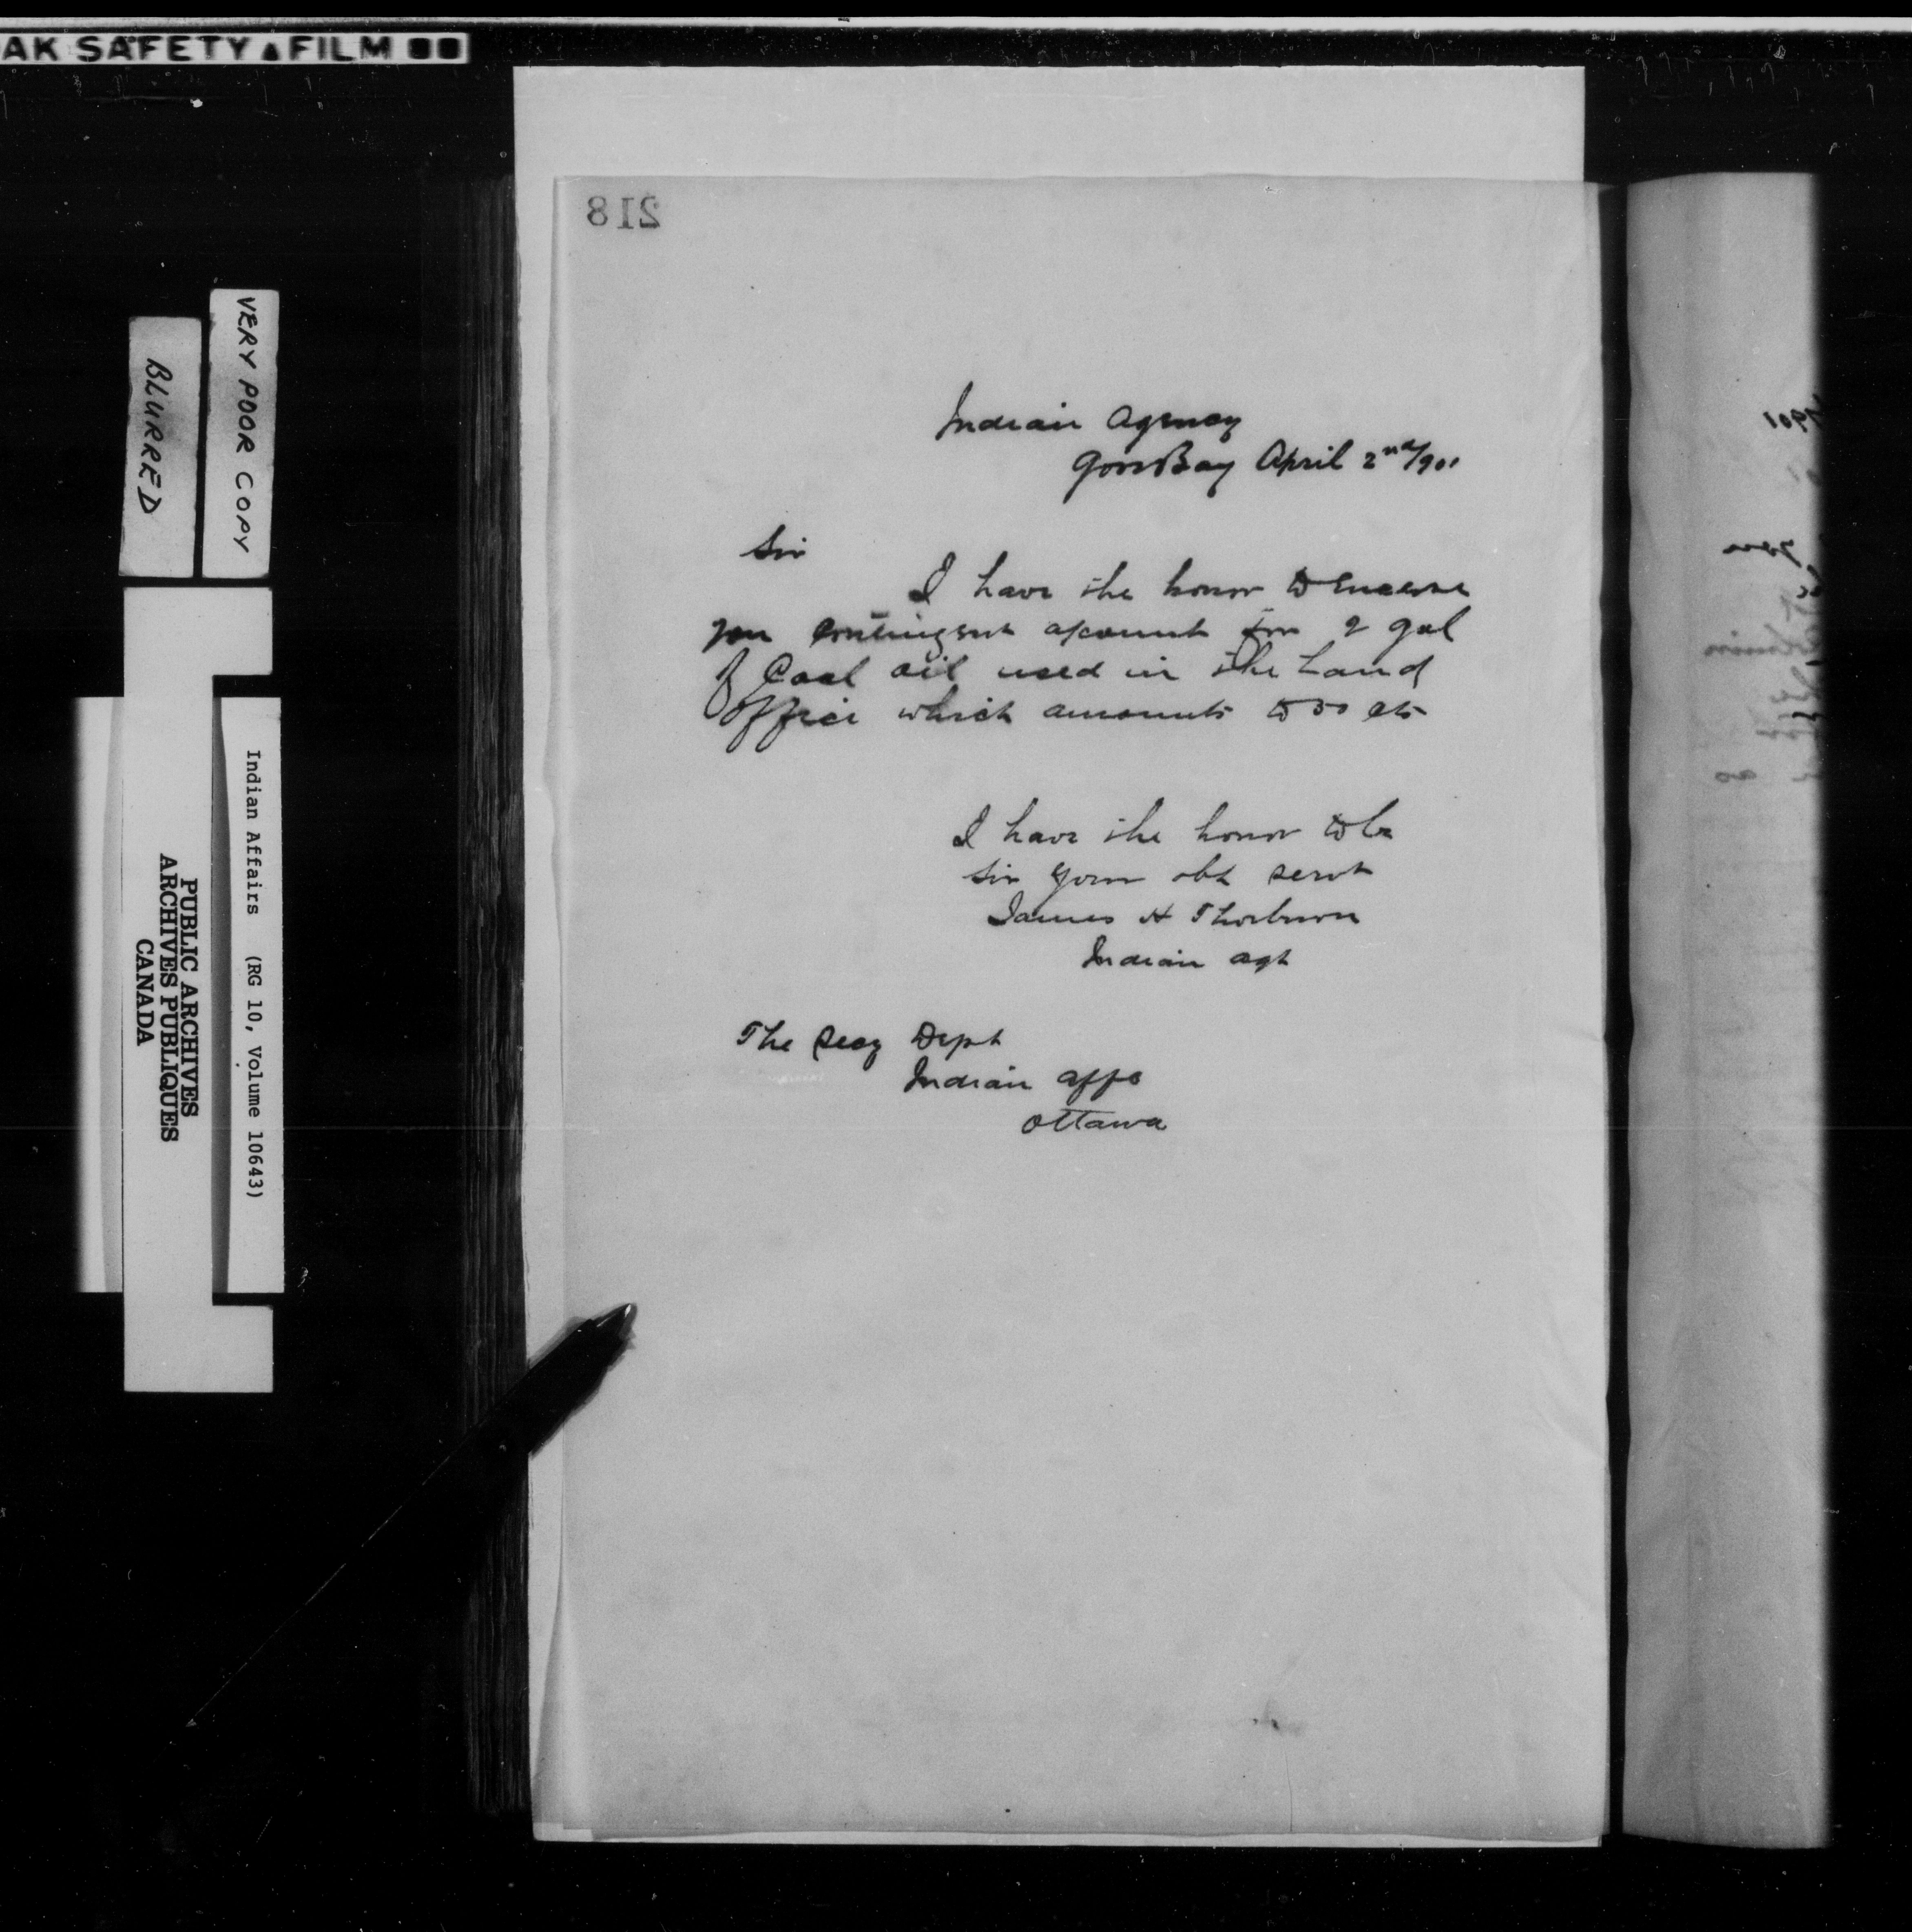 AK SAFETY FILM
218
VERY POOR COPY
BLURRED
Indian Affairs (RG 10, Volume 10643)
PUBLIC ARCHIVES
ARCHIVES PUBLIQUES
CANADA
Indian Agency
April 2nd/901
Sir
I have the honor to Enclose
you Contingent account for 2 gal
of Coal oil used in the Land
Office which amounts to 50 cts
I have the honor to be
Sir your obt servt
James H Thorburn
Indian agt
The Secy Dept
Indian affs
Ottawa
1901